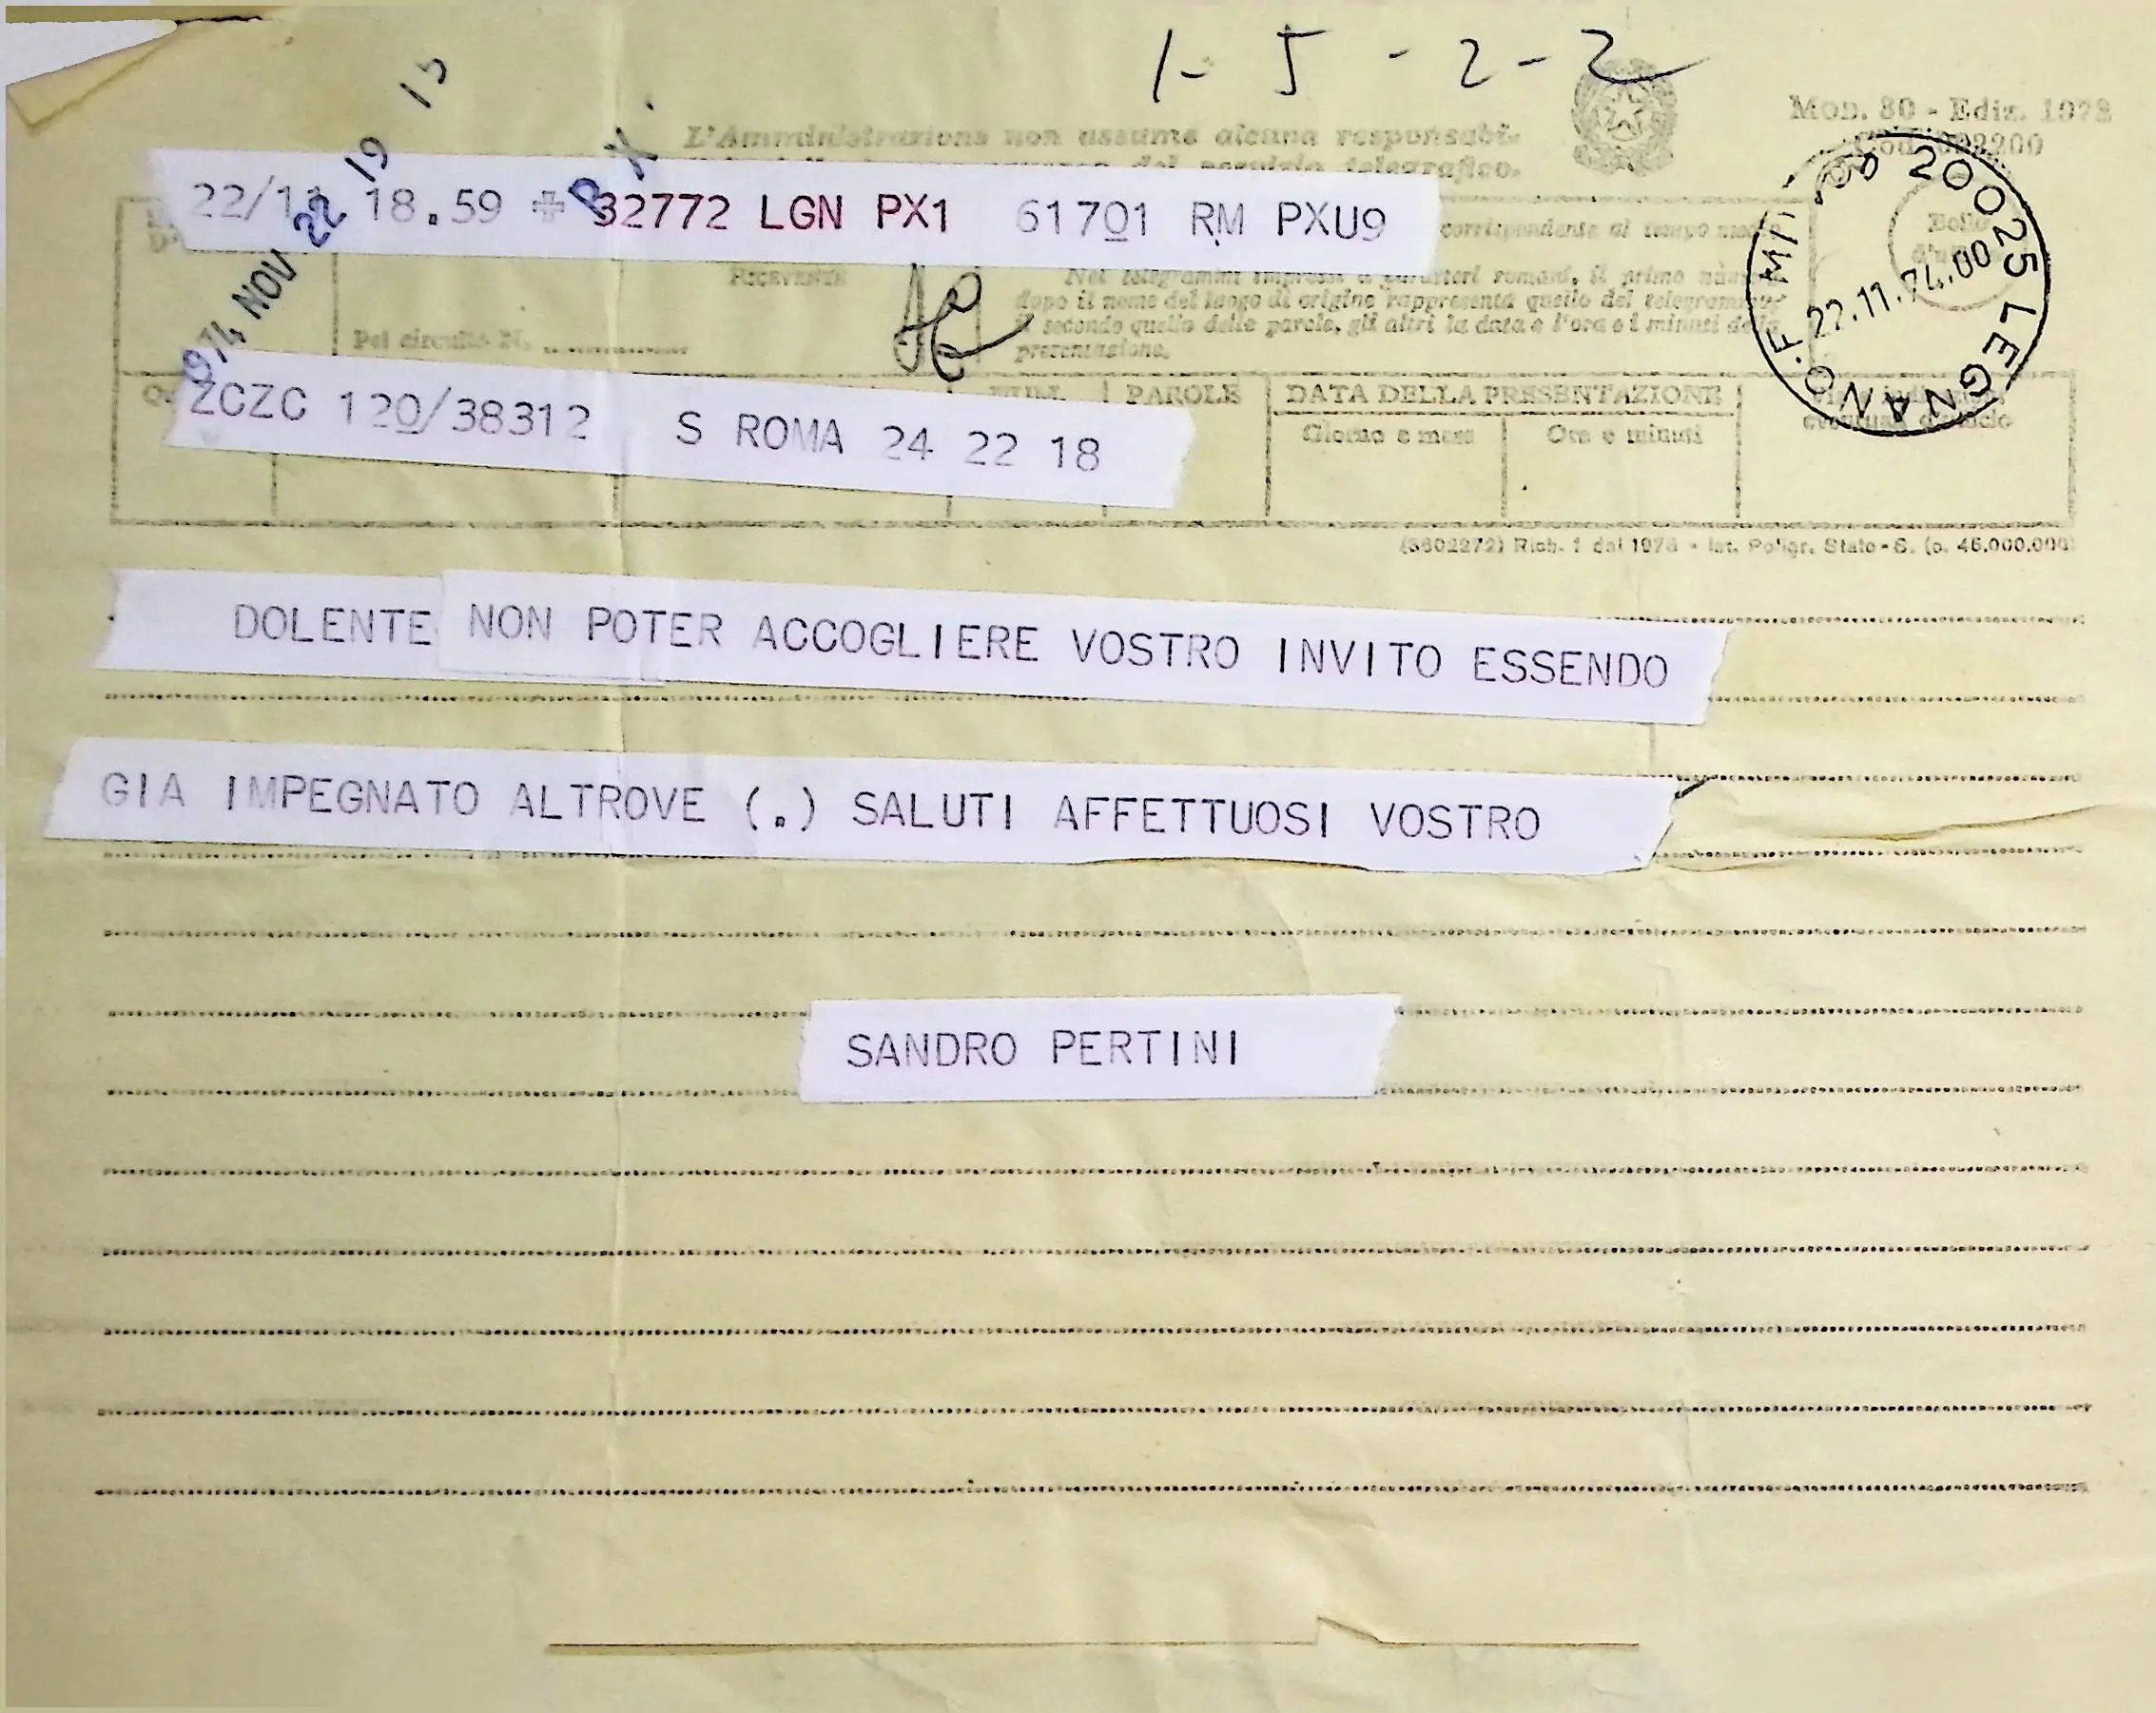 1-5-2-2
MOD. 80 - Ediz. 1972
L'Amministrazione non assume alcuna responsabi-
del servizio telegrafico.
22/11 18.59 + 32772 LGN PX1 61701 RM PXU9
1974 NOV 22 19 15
20025 LEGNANO
22.11.74.00
corrispondente al tempo medio
RICEVENTE
Nei telegrammi impressi a caratteri romani, il primo
dopo il nome del luogo di origine rappresenta quello del telegramma,
il secondo quello delle parole, gli altri la data e l'ora e i minuti della
presentazione.
Pel circuito N.
ZCZC 120/38312 S ROMA 24 22 18
PAROLE
DATA DELLA PRESENTAZIONE
Giorno e mese
Ore e minuti
Rich. 1 del 1973 - Ist. Poligr. Stato - S. (c. 46.000.000)
DOLENTE NON POTER ACCOGLIERE VOSTRO INVITO ESSENDO
GIA IMPEGNATO ALTROVE (.) SALUTI AFFETTUOSI VOSTRO
SANDRO PERTINI